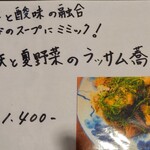 と酸味の融合
のスープにミミック!
と夏野菜のラッサム蕎
1.400-